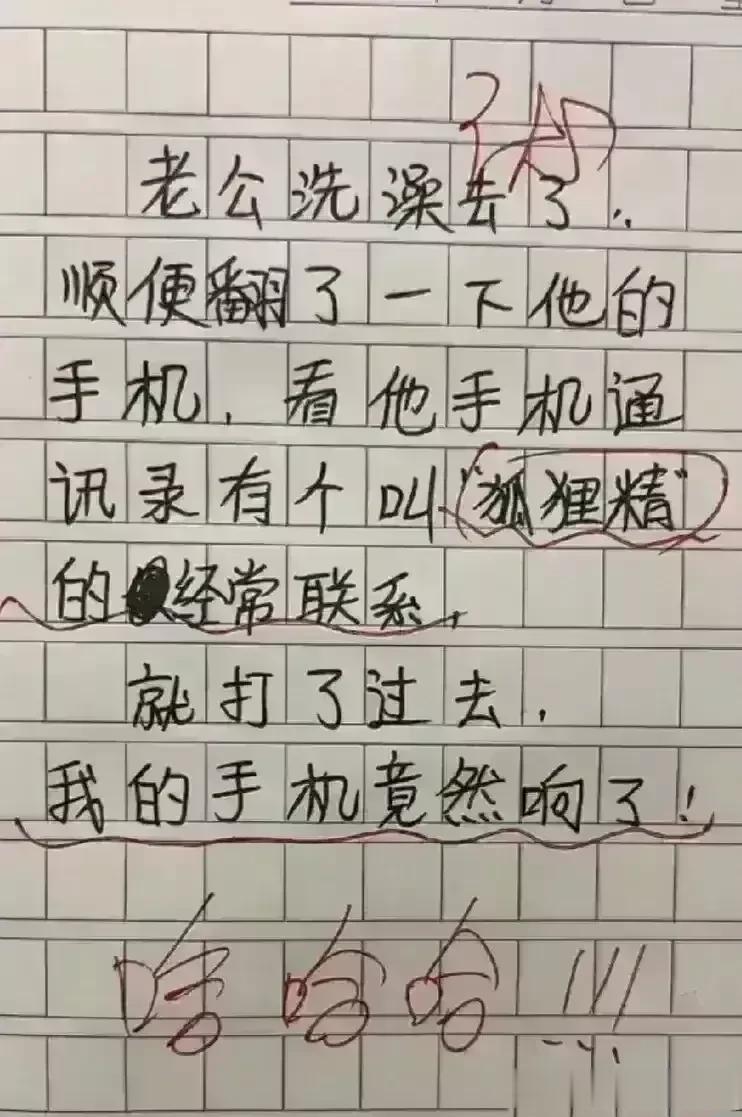 老公洗澡去了..
顺便翻了一下他的
手机，看他手机通
讯录有个叫"狐狸精"
的经常联系，
就打了过去，
我的手机竟然响了！
哈哈哈!!!